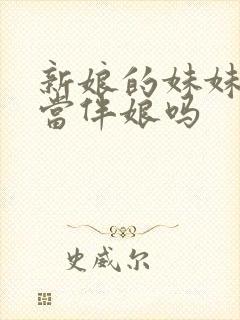 新娘的妹妹
當伴娘吗
史威尔